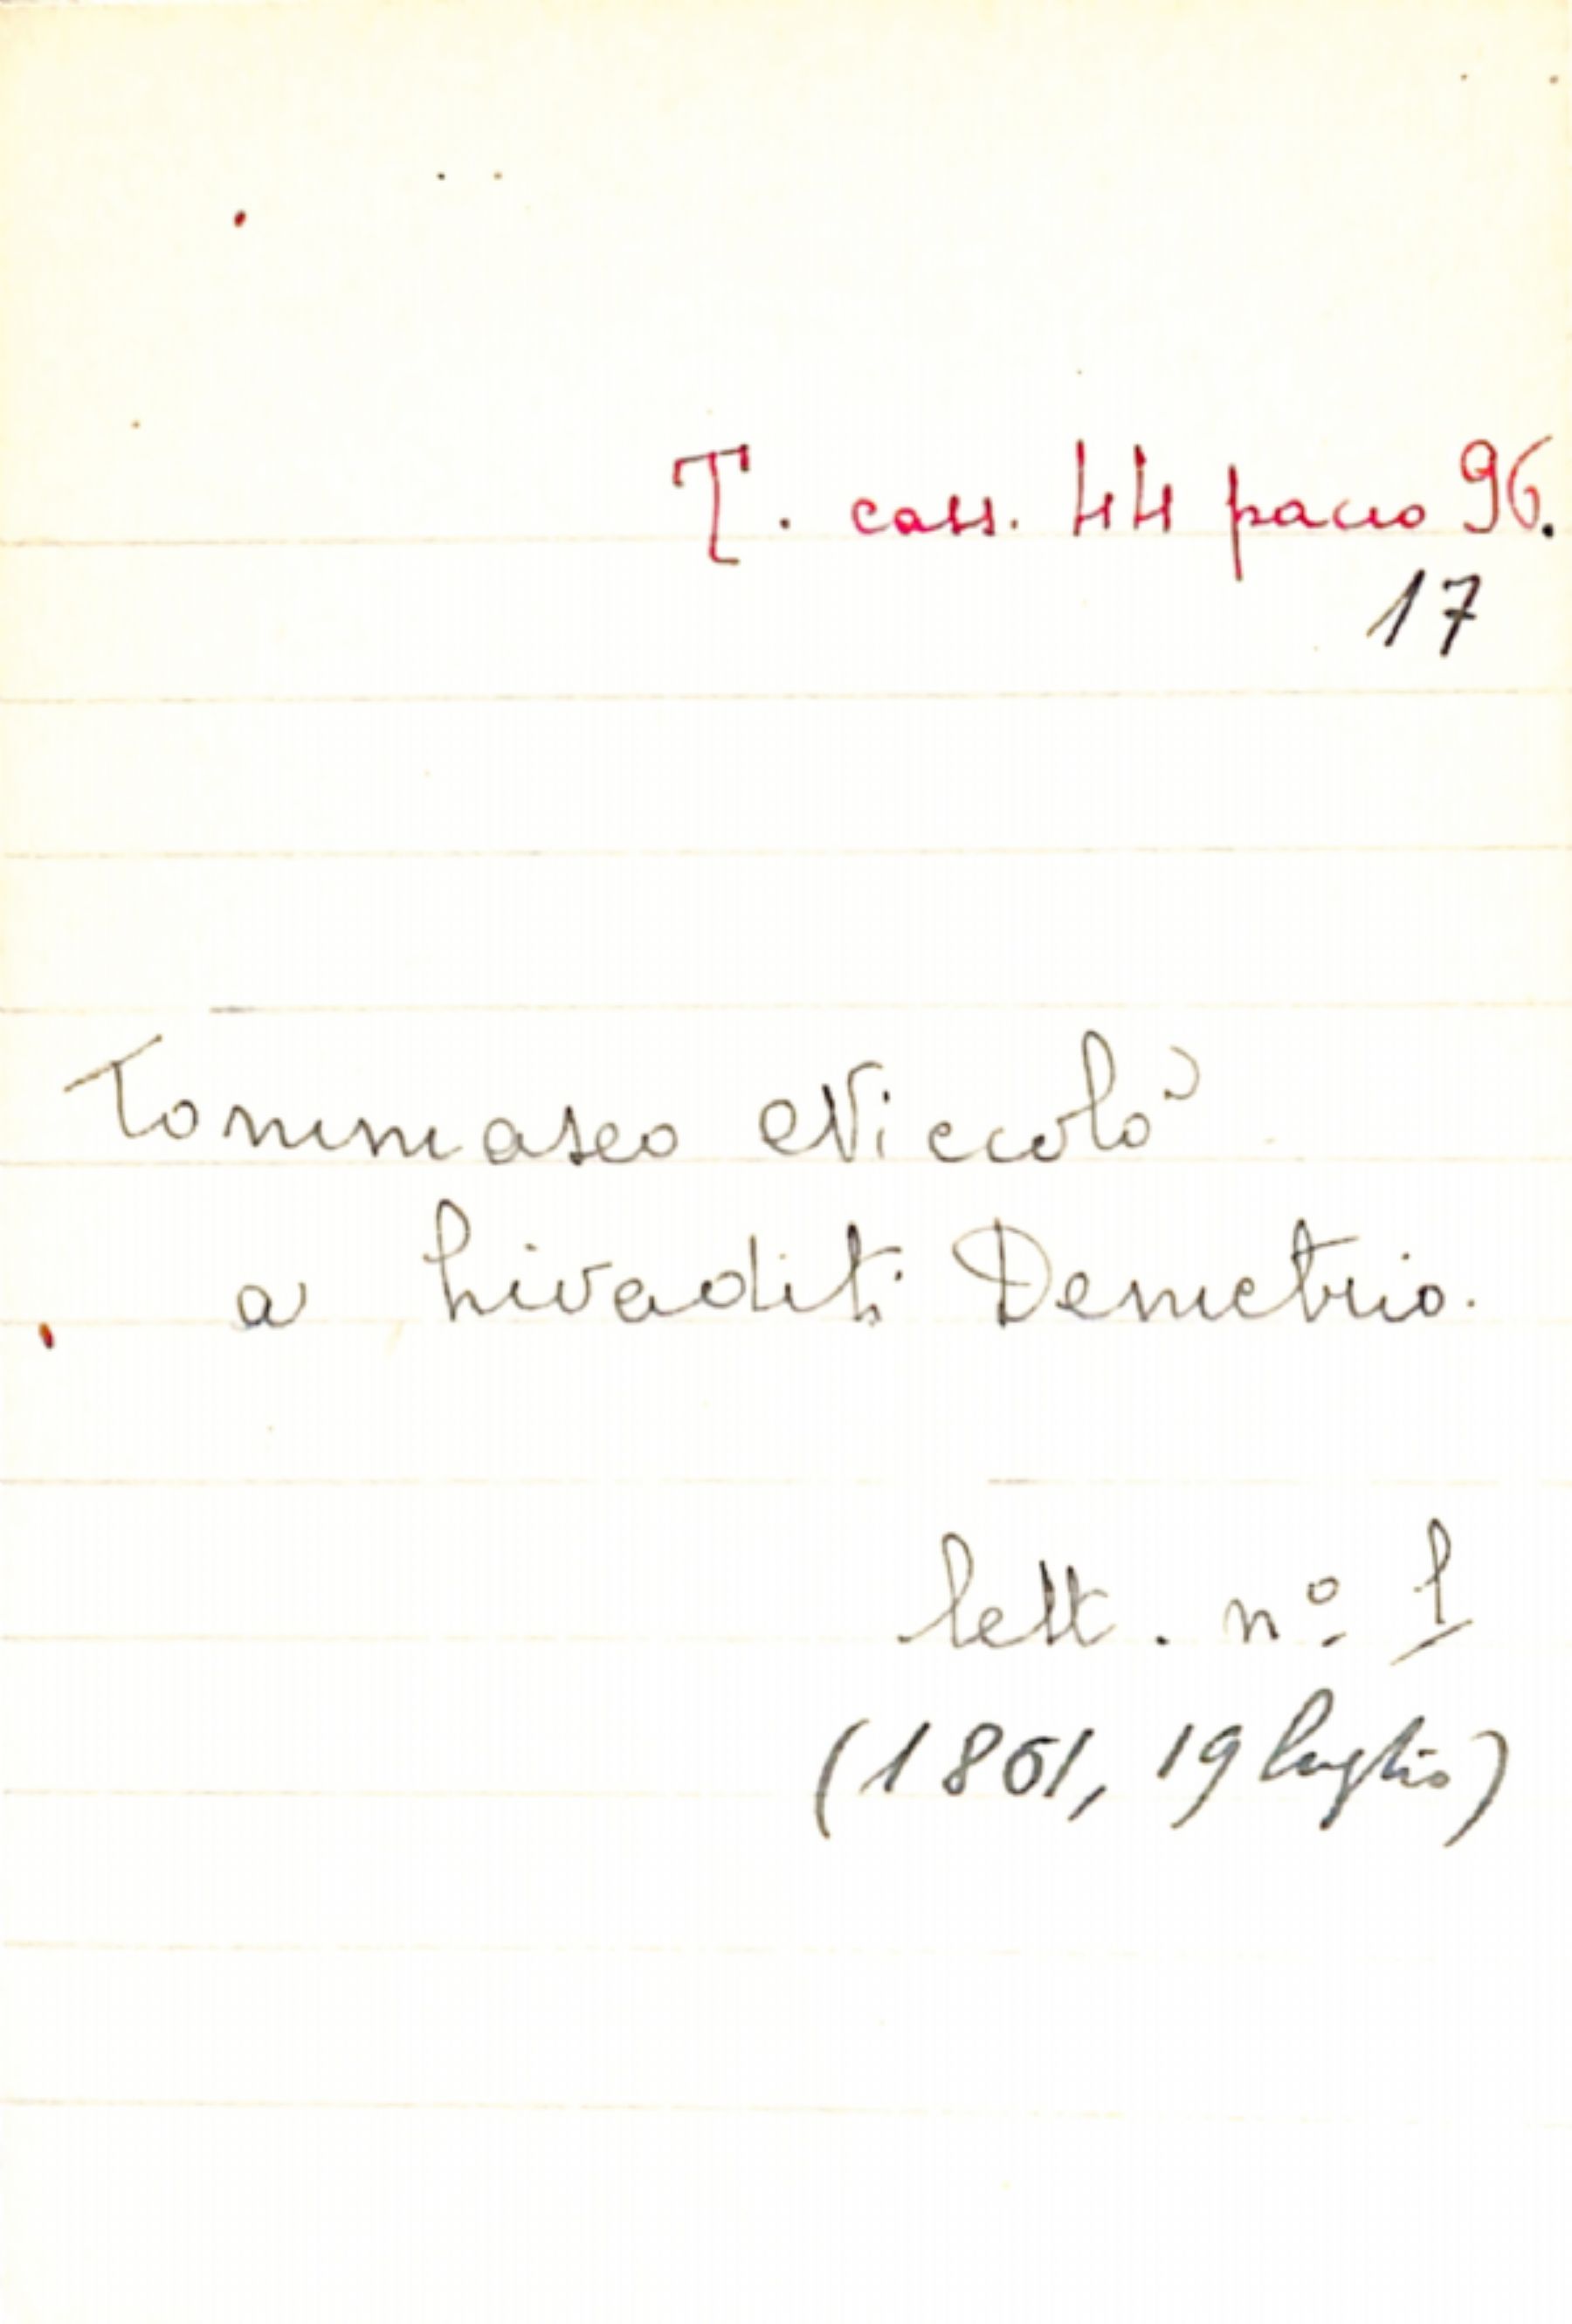 T. cass. 44 pacco 96.
17
Tommaseo Niccolò
a Livaditi Demetrio.
lett. nº 1
(1861, 19 luglio)